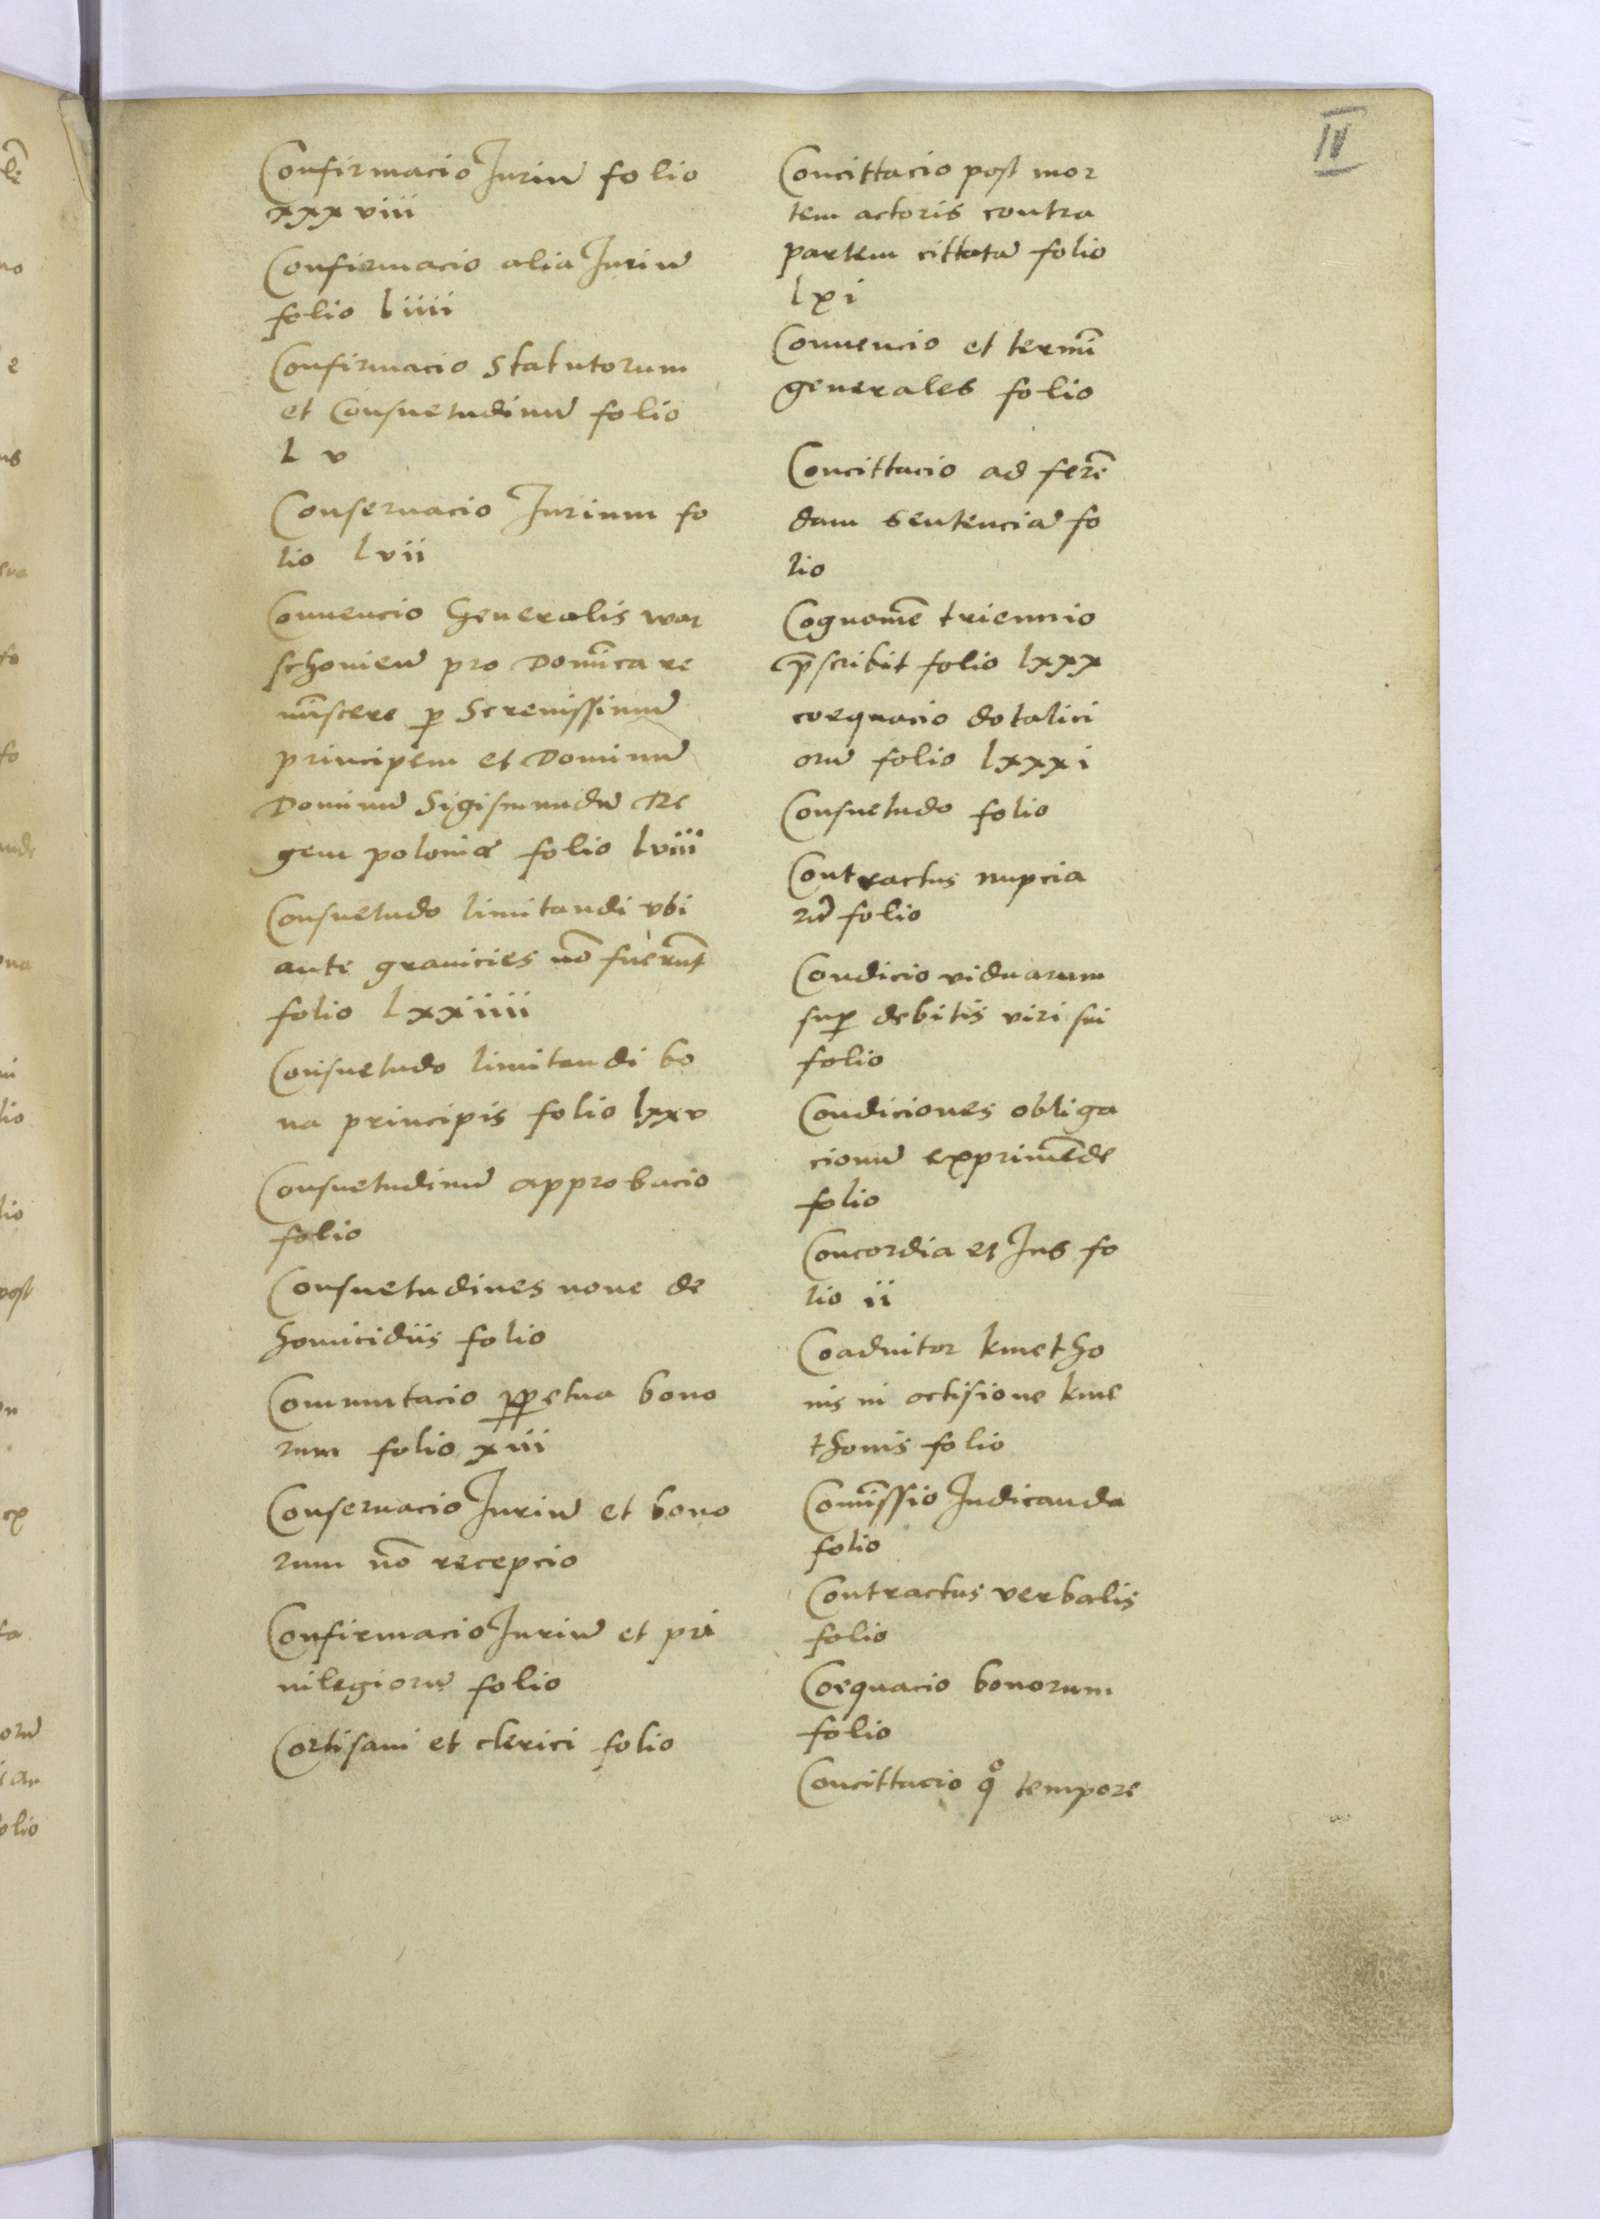 IV
Confirmacio Juriū folio
xxxviii
Confirmacio alia Juriū
folio liiii
Confirmacio Statutorum
et Consuetudinū folio
l v
Conseruacio Jurium fo
lio lvii
Conuencio Generalis war
schouien̄ pro Domīca re
mīscere p̱ Serenissimū
principem et Dominū
Dominū Sigismundū Re
gem polonie folio lviii
Consuetudo limitandi vbi
ante granicies nō fuerūt
folio lxxiiii
Consuetudo limitandi bo
na principis folio lxxv
Consuetudinū approbacio
folio
Consuetudines noue de
homicidiis folio
Commutacio p̱petua bono
rum folio xiii
Conseruacio Juriū et bono
rum nō recepcio
Confirmacio Juriū et pri
uilegiorū folio
Cortisani et clerici folio
Concittacio post mor
tem actoris contra
partem cittatā folio
lxi
Conuencio et termī
generales folio
Concittacio ad ferē
dam sentenciā fo
lio
Cognomē triennio
p̄scribit folio lxxx
coequacio dotalici
orū folio lxxxi
Consuetudo folio
Contractus nupcia
rū folio
Condicio viduarum
sup̱ debitis viri sui
folio
Condiciones obliga
cionū exprimēde
folio
Concordia et Jus fo
lio ii
Coadiutor kmetho
nis in occisione kme
thonis folio
Comīssio Judicanda
folio
Contractus verbalis
folio
Coequacio bonorum
folio
Concittacio qͦ tempore